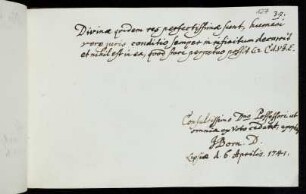 39.
Divinae quidem res perfectissimae sunt, humani
vero juris conditio semper in infinitum decurrit
et nihil est in ea, quod stare perpetuo possit
Consultissimo Dno Possessori ut
omnia ex voto cedant,
J Born D.
d. 6 Aprilis. 1741.